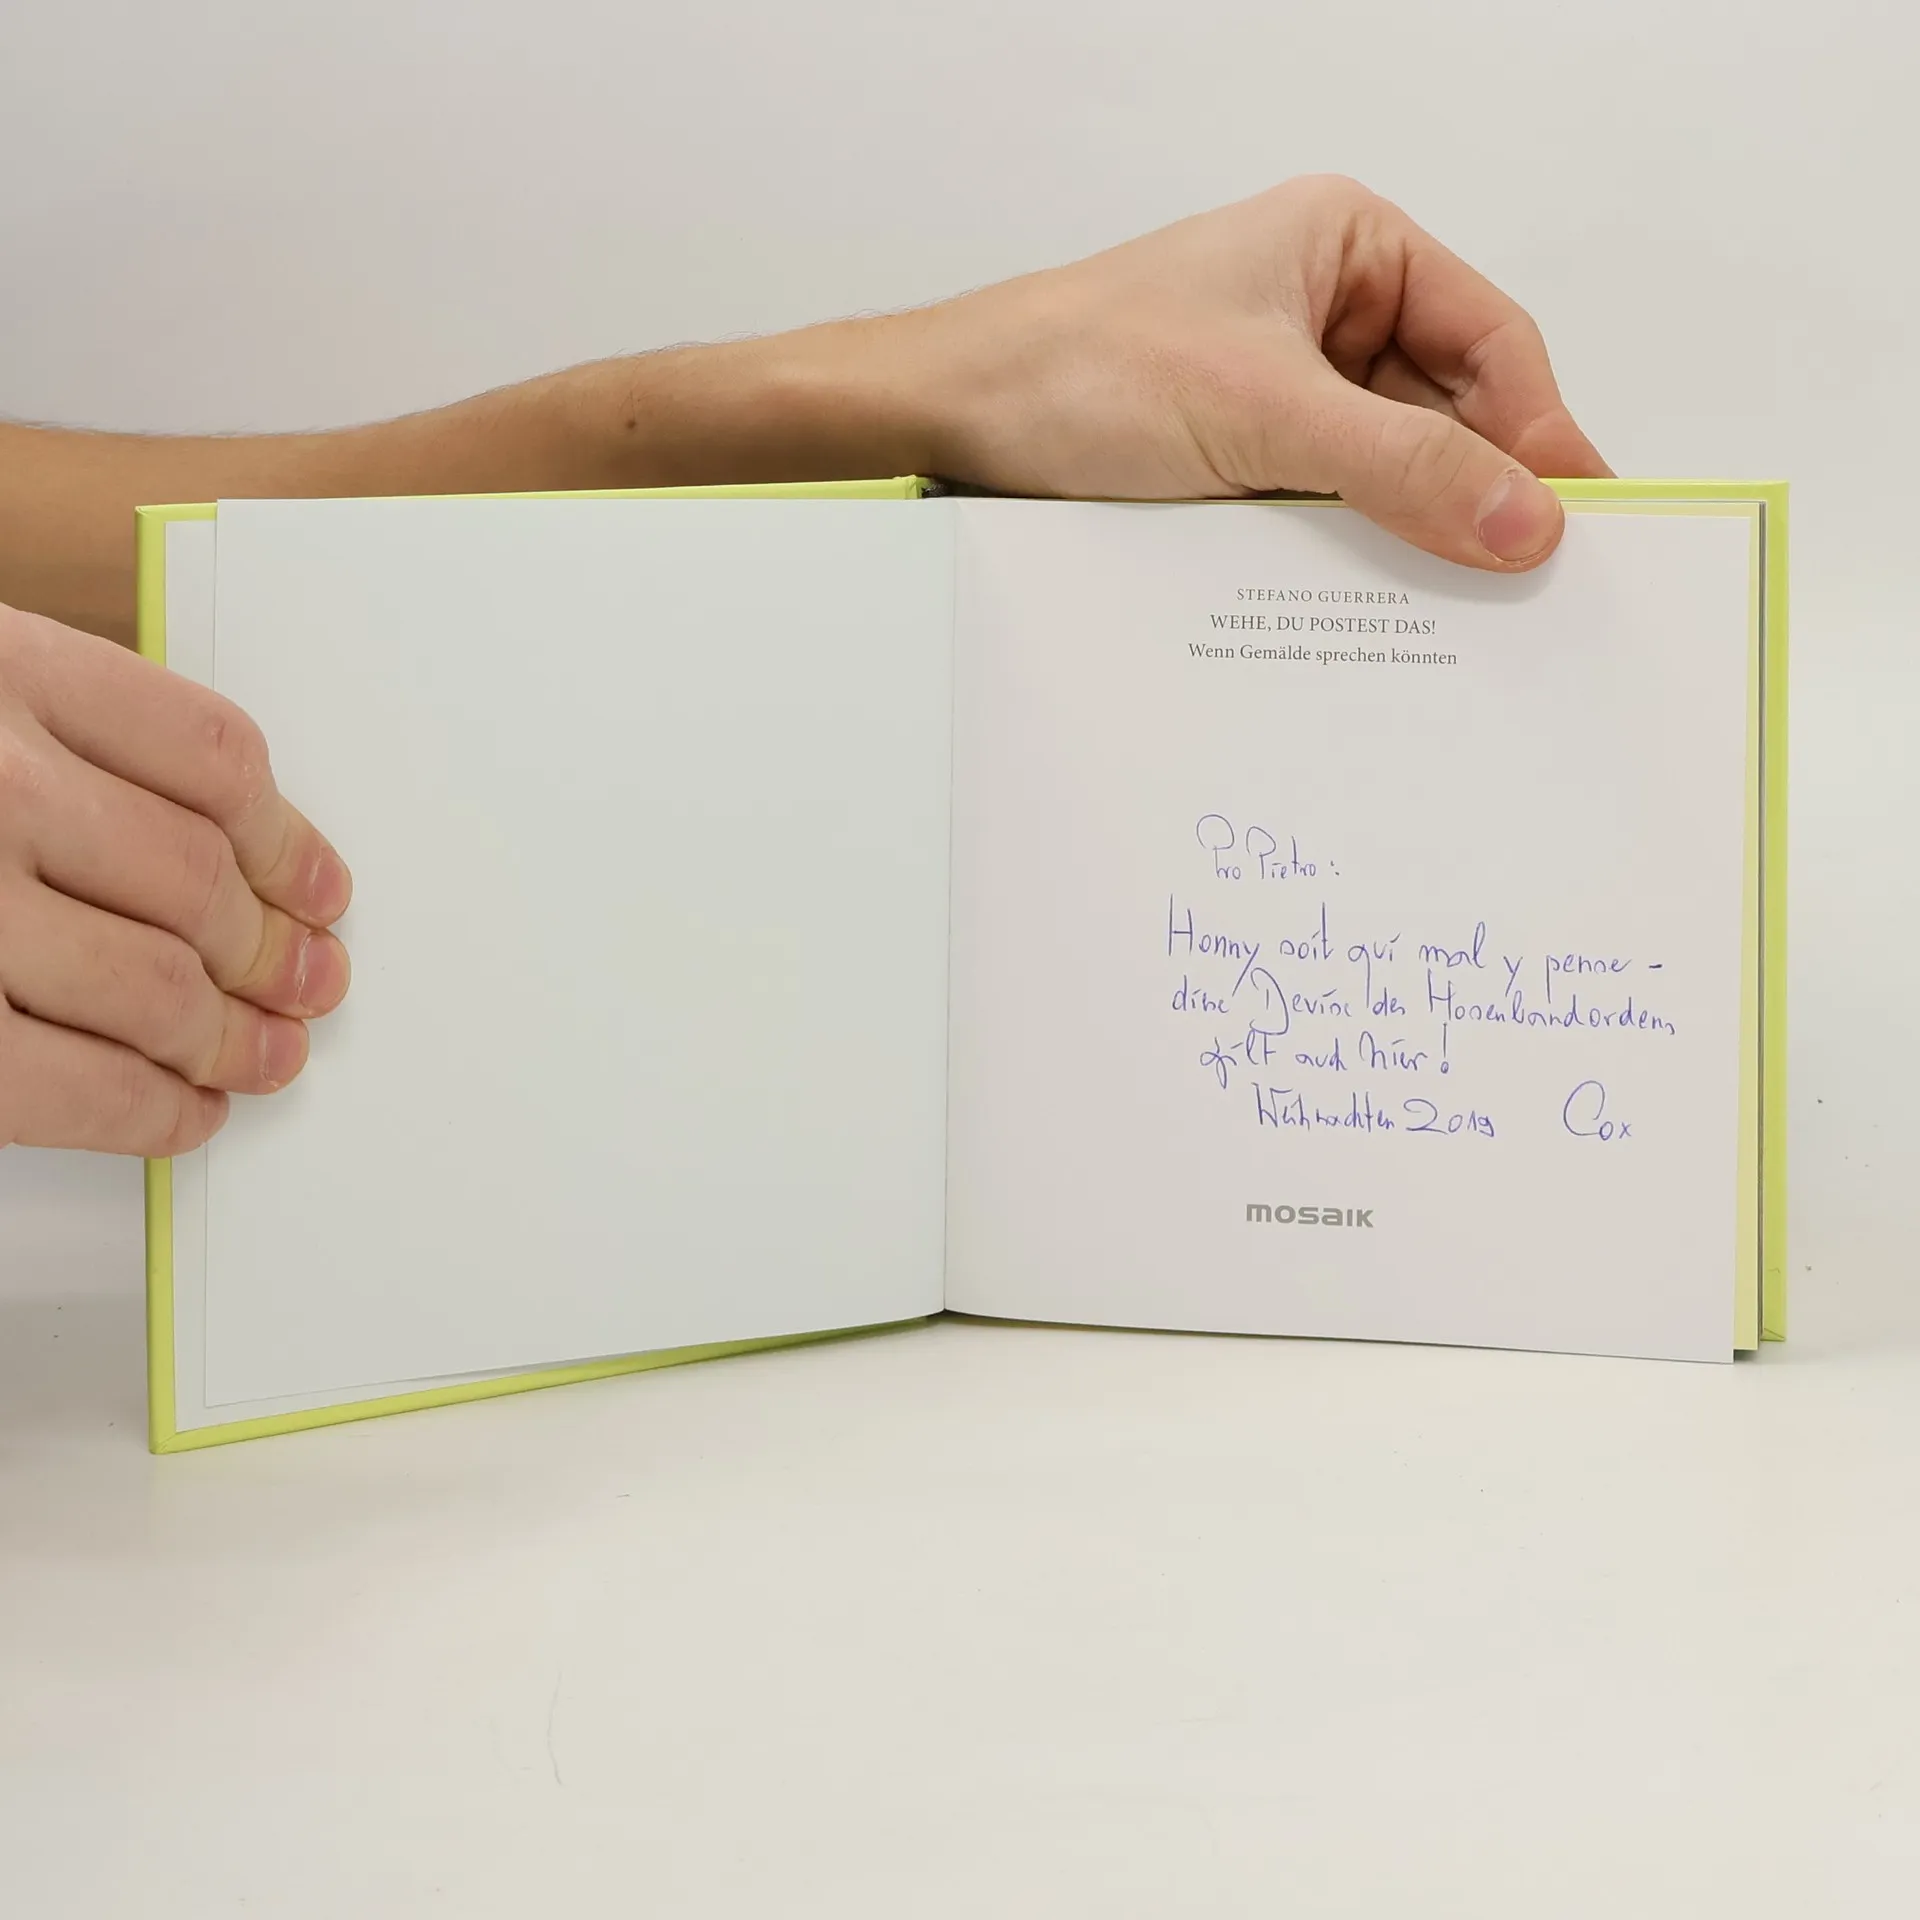 STEFANO GUERRERA
WEHE, DU POSTEST DAS!
Wenn Gemälde sprechen könnten
Pro Pietro:
Honny soit qui mal y pense -
diese Devise des Hosenbandordens
gilt auch hier!
Weihnachten 2019 Cox
mosaik